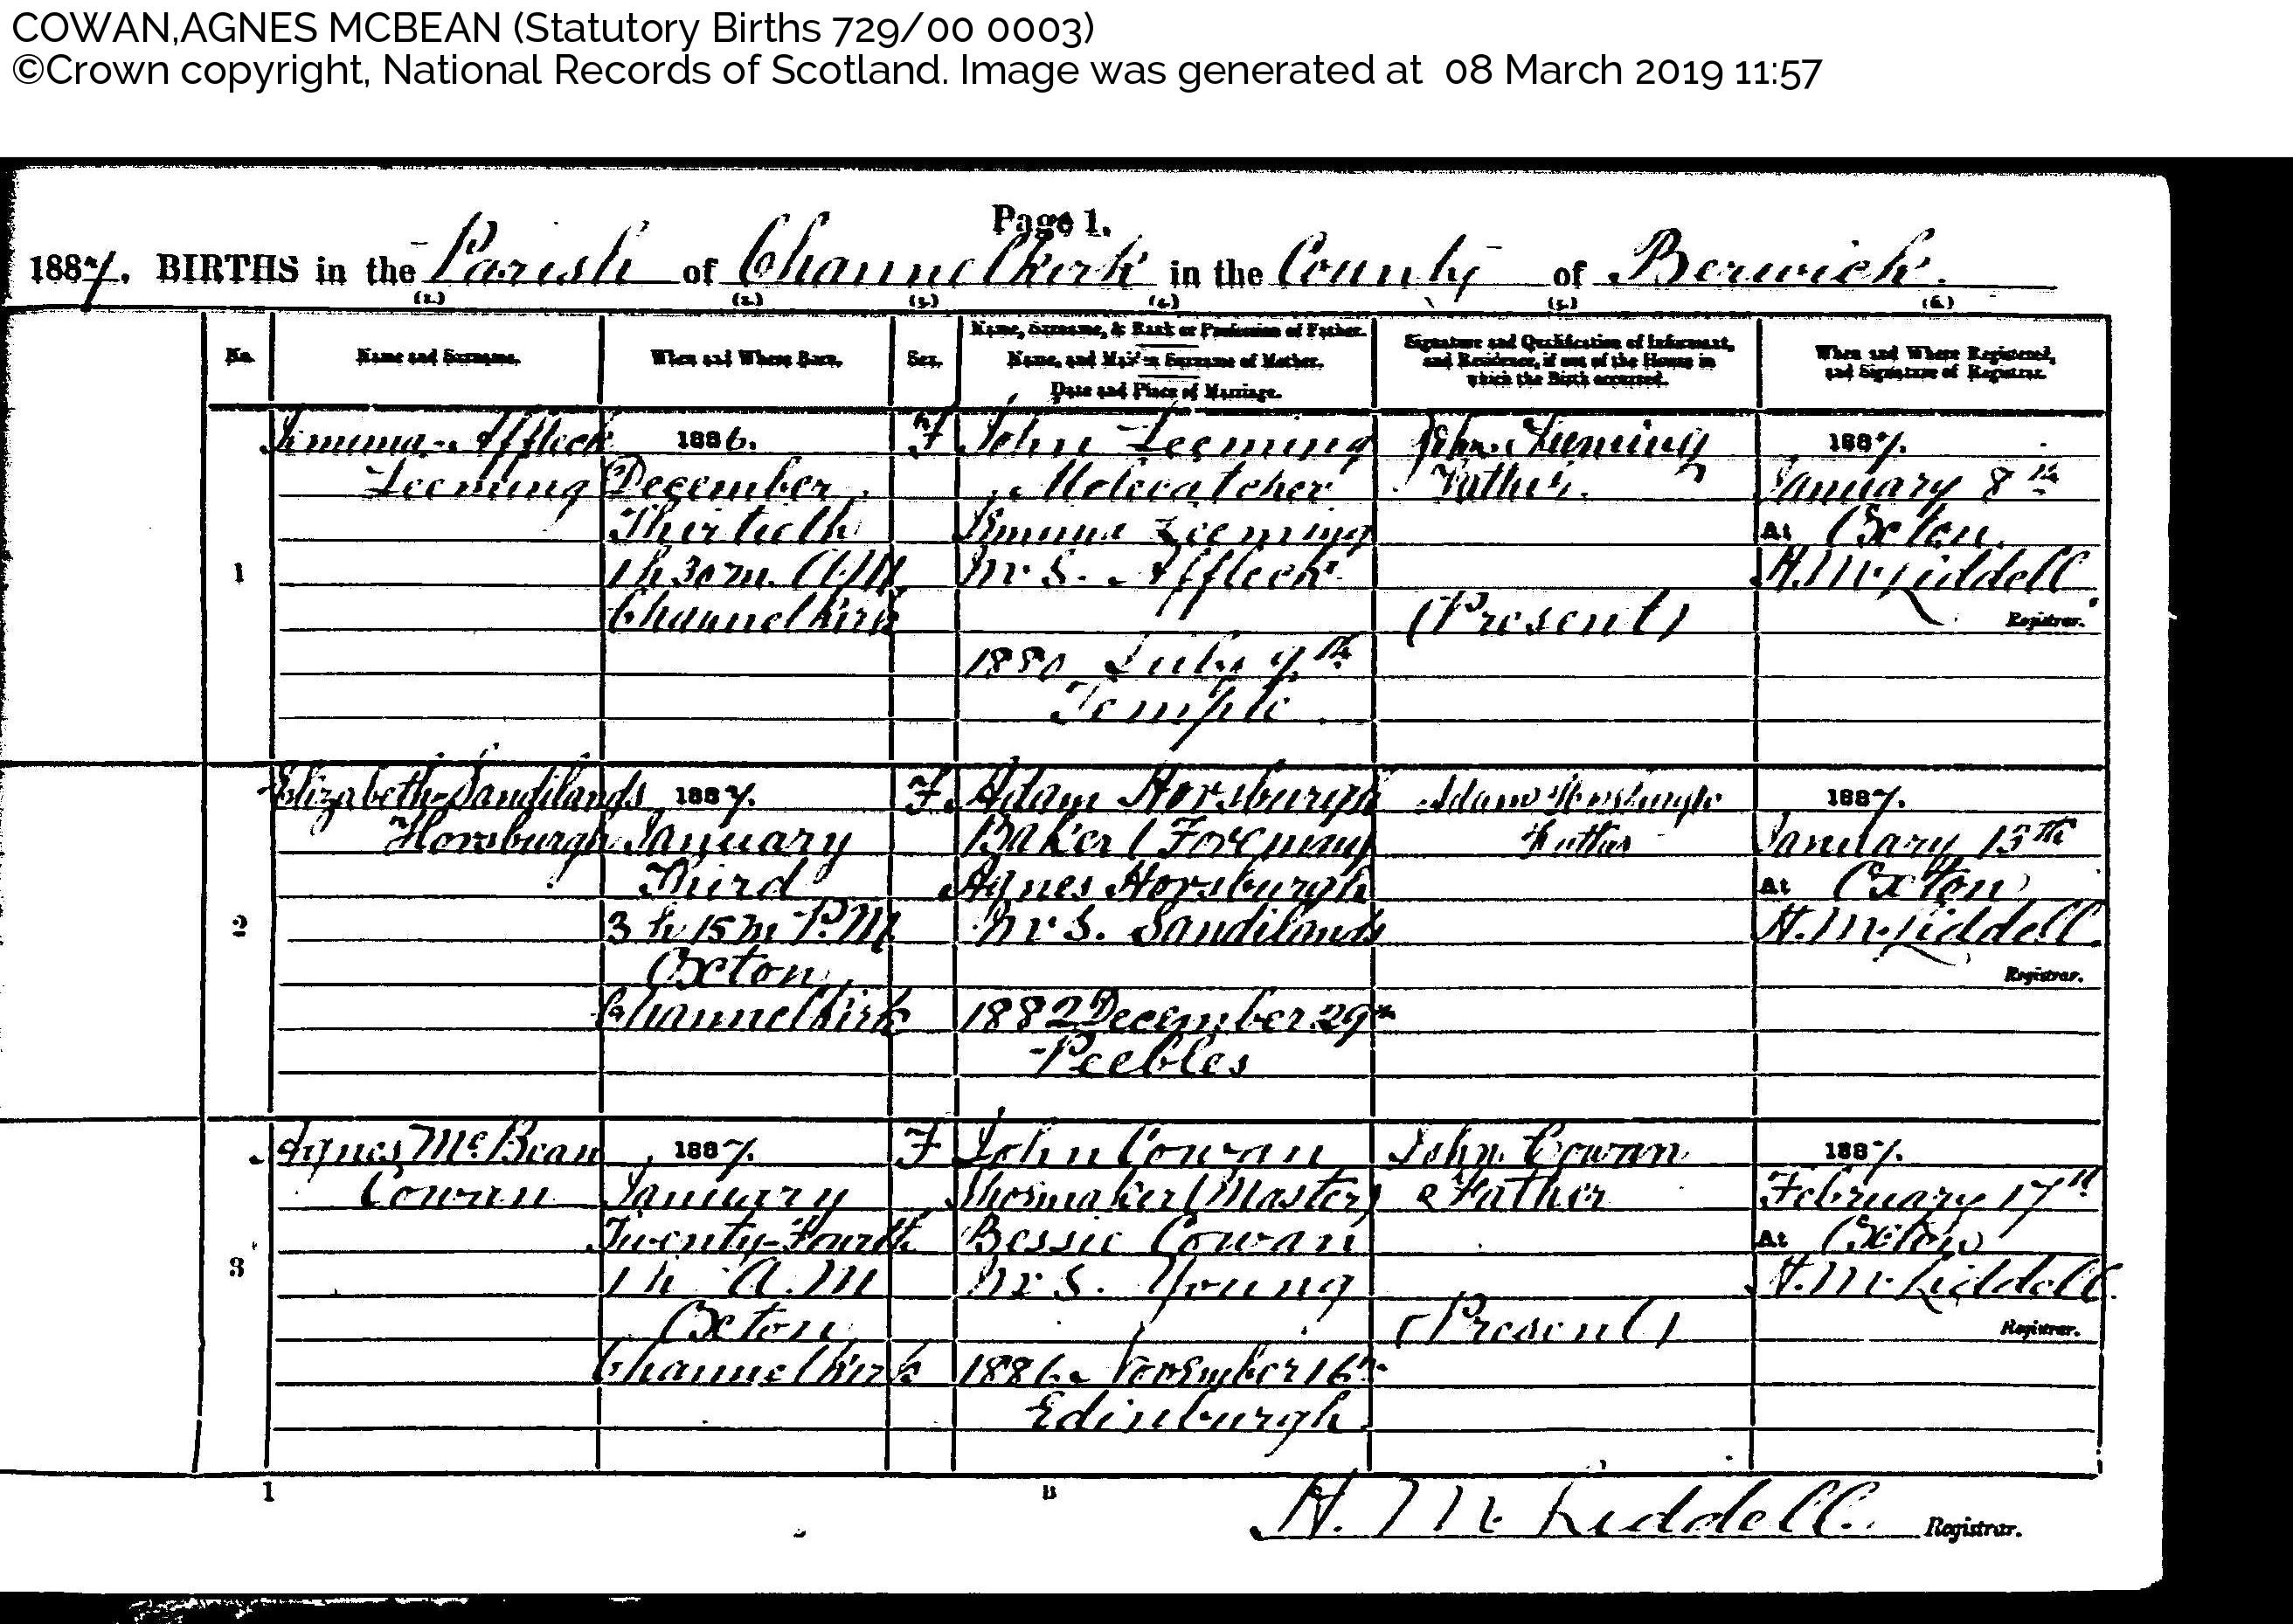 COWAN,AGNES MCBEAN (Statutory Births 729/00 0003)
©Crown copyright, National Records of Scotland. Image was generated at 08 March 2019 11:57
Page 1.
1887. BIRTHS in the Parish of Channelkirk in the County of Berwick.
(1.) (2.) (3.) (4.) (5.) (6.)
No.
Name and Surname.
When and Where Born.
Sex.
Name, Surname, & Rank or Profession of Father.
Name, and Maiden Surname of Mother.
Date and Place of Marriage.
Signature and Qualification of Informant,
and Residence, if out of the House in
which the Birth occurred.
When and Where Registered,
and Signature of Registrar.
1
Jemima Affleck
Leeming
1886.
December
Thirtieth
1h 30m. A.M.
Channelkirk
F
John Leeming
Molecatcher
Jemima Leeming
M.S. Affleck
1880 July 9th
Temple
John Leeming
Father.
(Present)
1887.
January 8th
At Oxton.
H. M. Liddell
Registrar.
2
Elizabeth-Sandilands
Horsburgh
1887.
January
Third
3 h 15 m P.M.
Oxton,
Channelkirk
F.
Adam Horsburgh
Baker (Foreman)
Agnes Horsburgh
M.S. Sandilands
1882 December 29th
Peebles
Adam Horsburgh
Father
1887.
January 13th
At Oxton
H. M. Liddell.
Registrar.
3
Agnes McBean
Cowan
1887.
January
Twenty-Fourth
1 h A.M
Oxton
Channelkirk
F
John Cowan
Shoemaker (Master)
Bessie Cowan
M.S. Young
1886 November 16th
Edinburgh
John Cowan
Father
(Present)
1887.
February 17th
At Oxton
H. M. Liddell.
Registrar.
1
B
H. M. Liddell. Registrar.